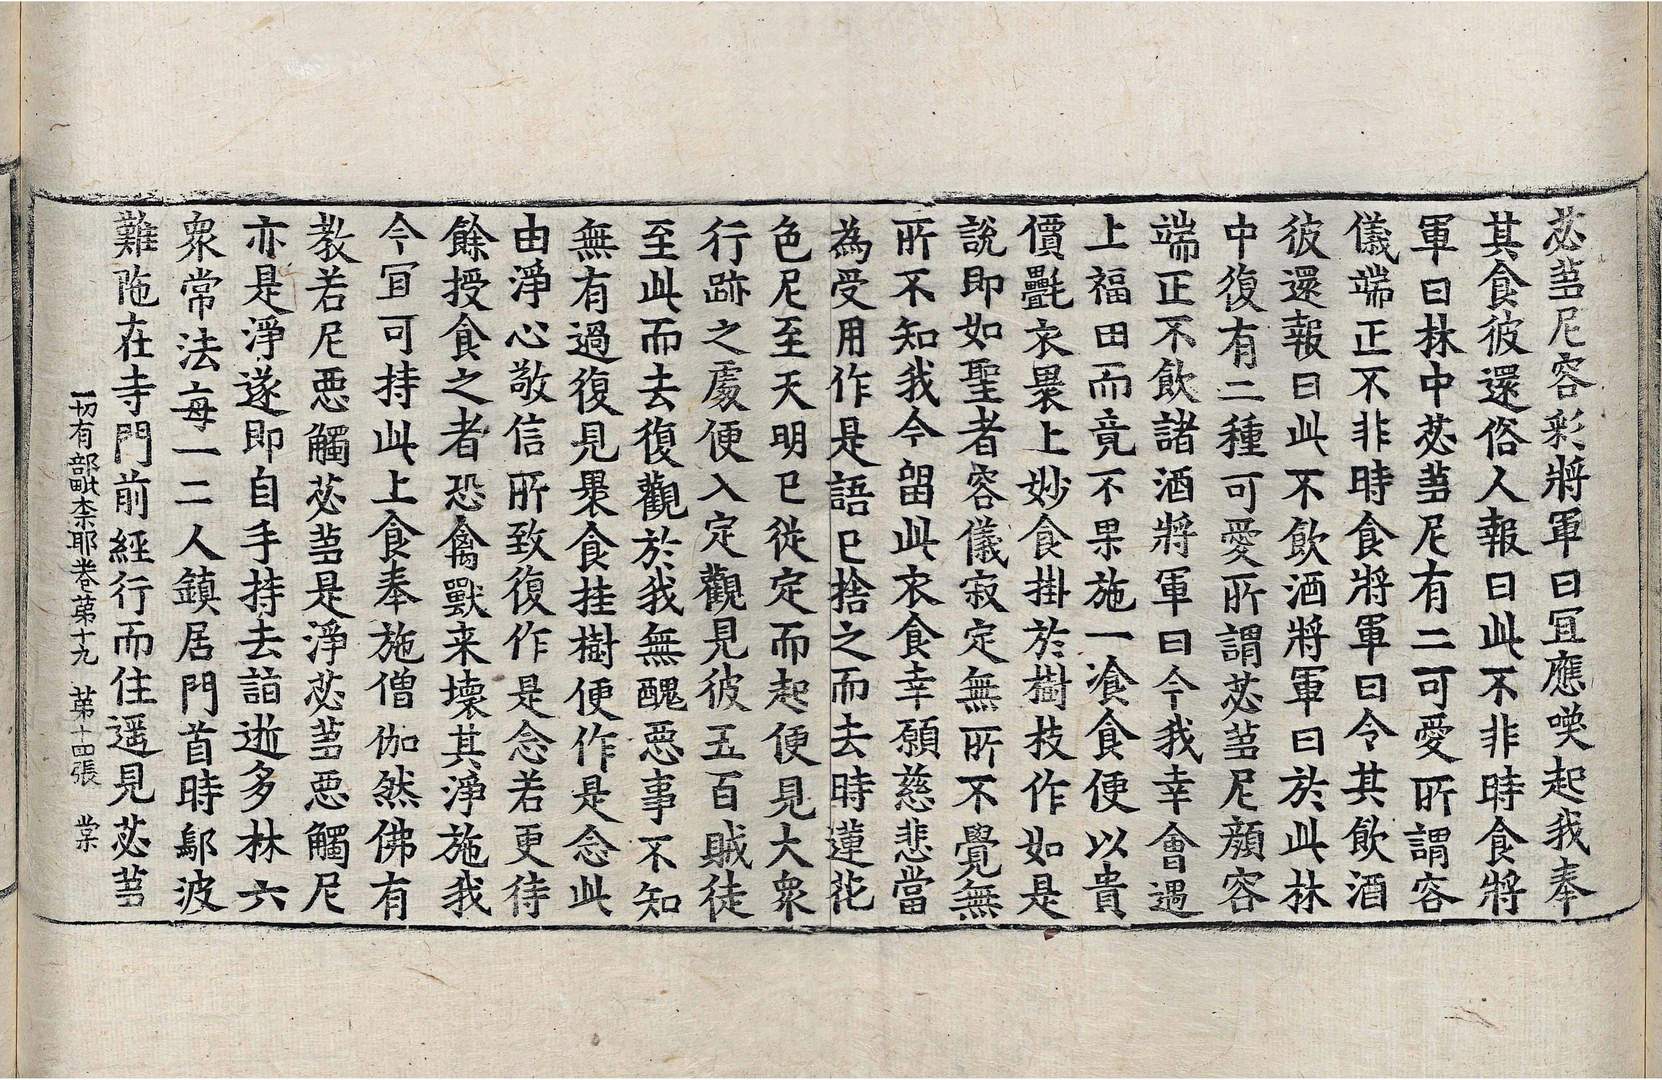 苾芻尼容彩將軍曰冝應喚起我奉
其食彼還俗人報曰此不非時食將
軍曰林中苾芻尼有二可愛所謂容
儀端正不非時食將軍曰令其飲酒
彼還報曰此不飲酒將軍曰於此林
中復有二種可愛所謂苾芻尼顔容
端正不飲諸酒將軍曰今我幸會遇
上福田而竟不果施一飡食便以貴
價㲲衣褁上妙食掛於樹枝作如是
說即如聖者容儀寂定無所不覺無
所不知我今留此衣食幸願慈悲當
為受用作是語已捨之而去時蓮花
色尼至天明已従定而起便見大衆
行跡之處便入定觀見彼五百賊徒
至此而去復觀於我無醜惡事不知
無有過復見褁食挂樹便作是念此
由淨心敬信所致復作是念若更待
餘授食之者恐禽獸来壞其淨施我
今冝可持此上食奉施僧伽然佛有
教若尼惡觸苾芻是淨苾芻惡觸尼
亦是淨遂即自手持去詣逝多林六
衆常法每一二人鎮居門首時鄔波
難陁在寺門前經行而住遥見苾芻
一切有部毗柰耶卷第十九 第十四張 棠